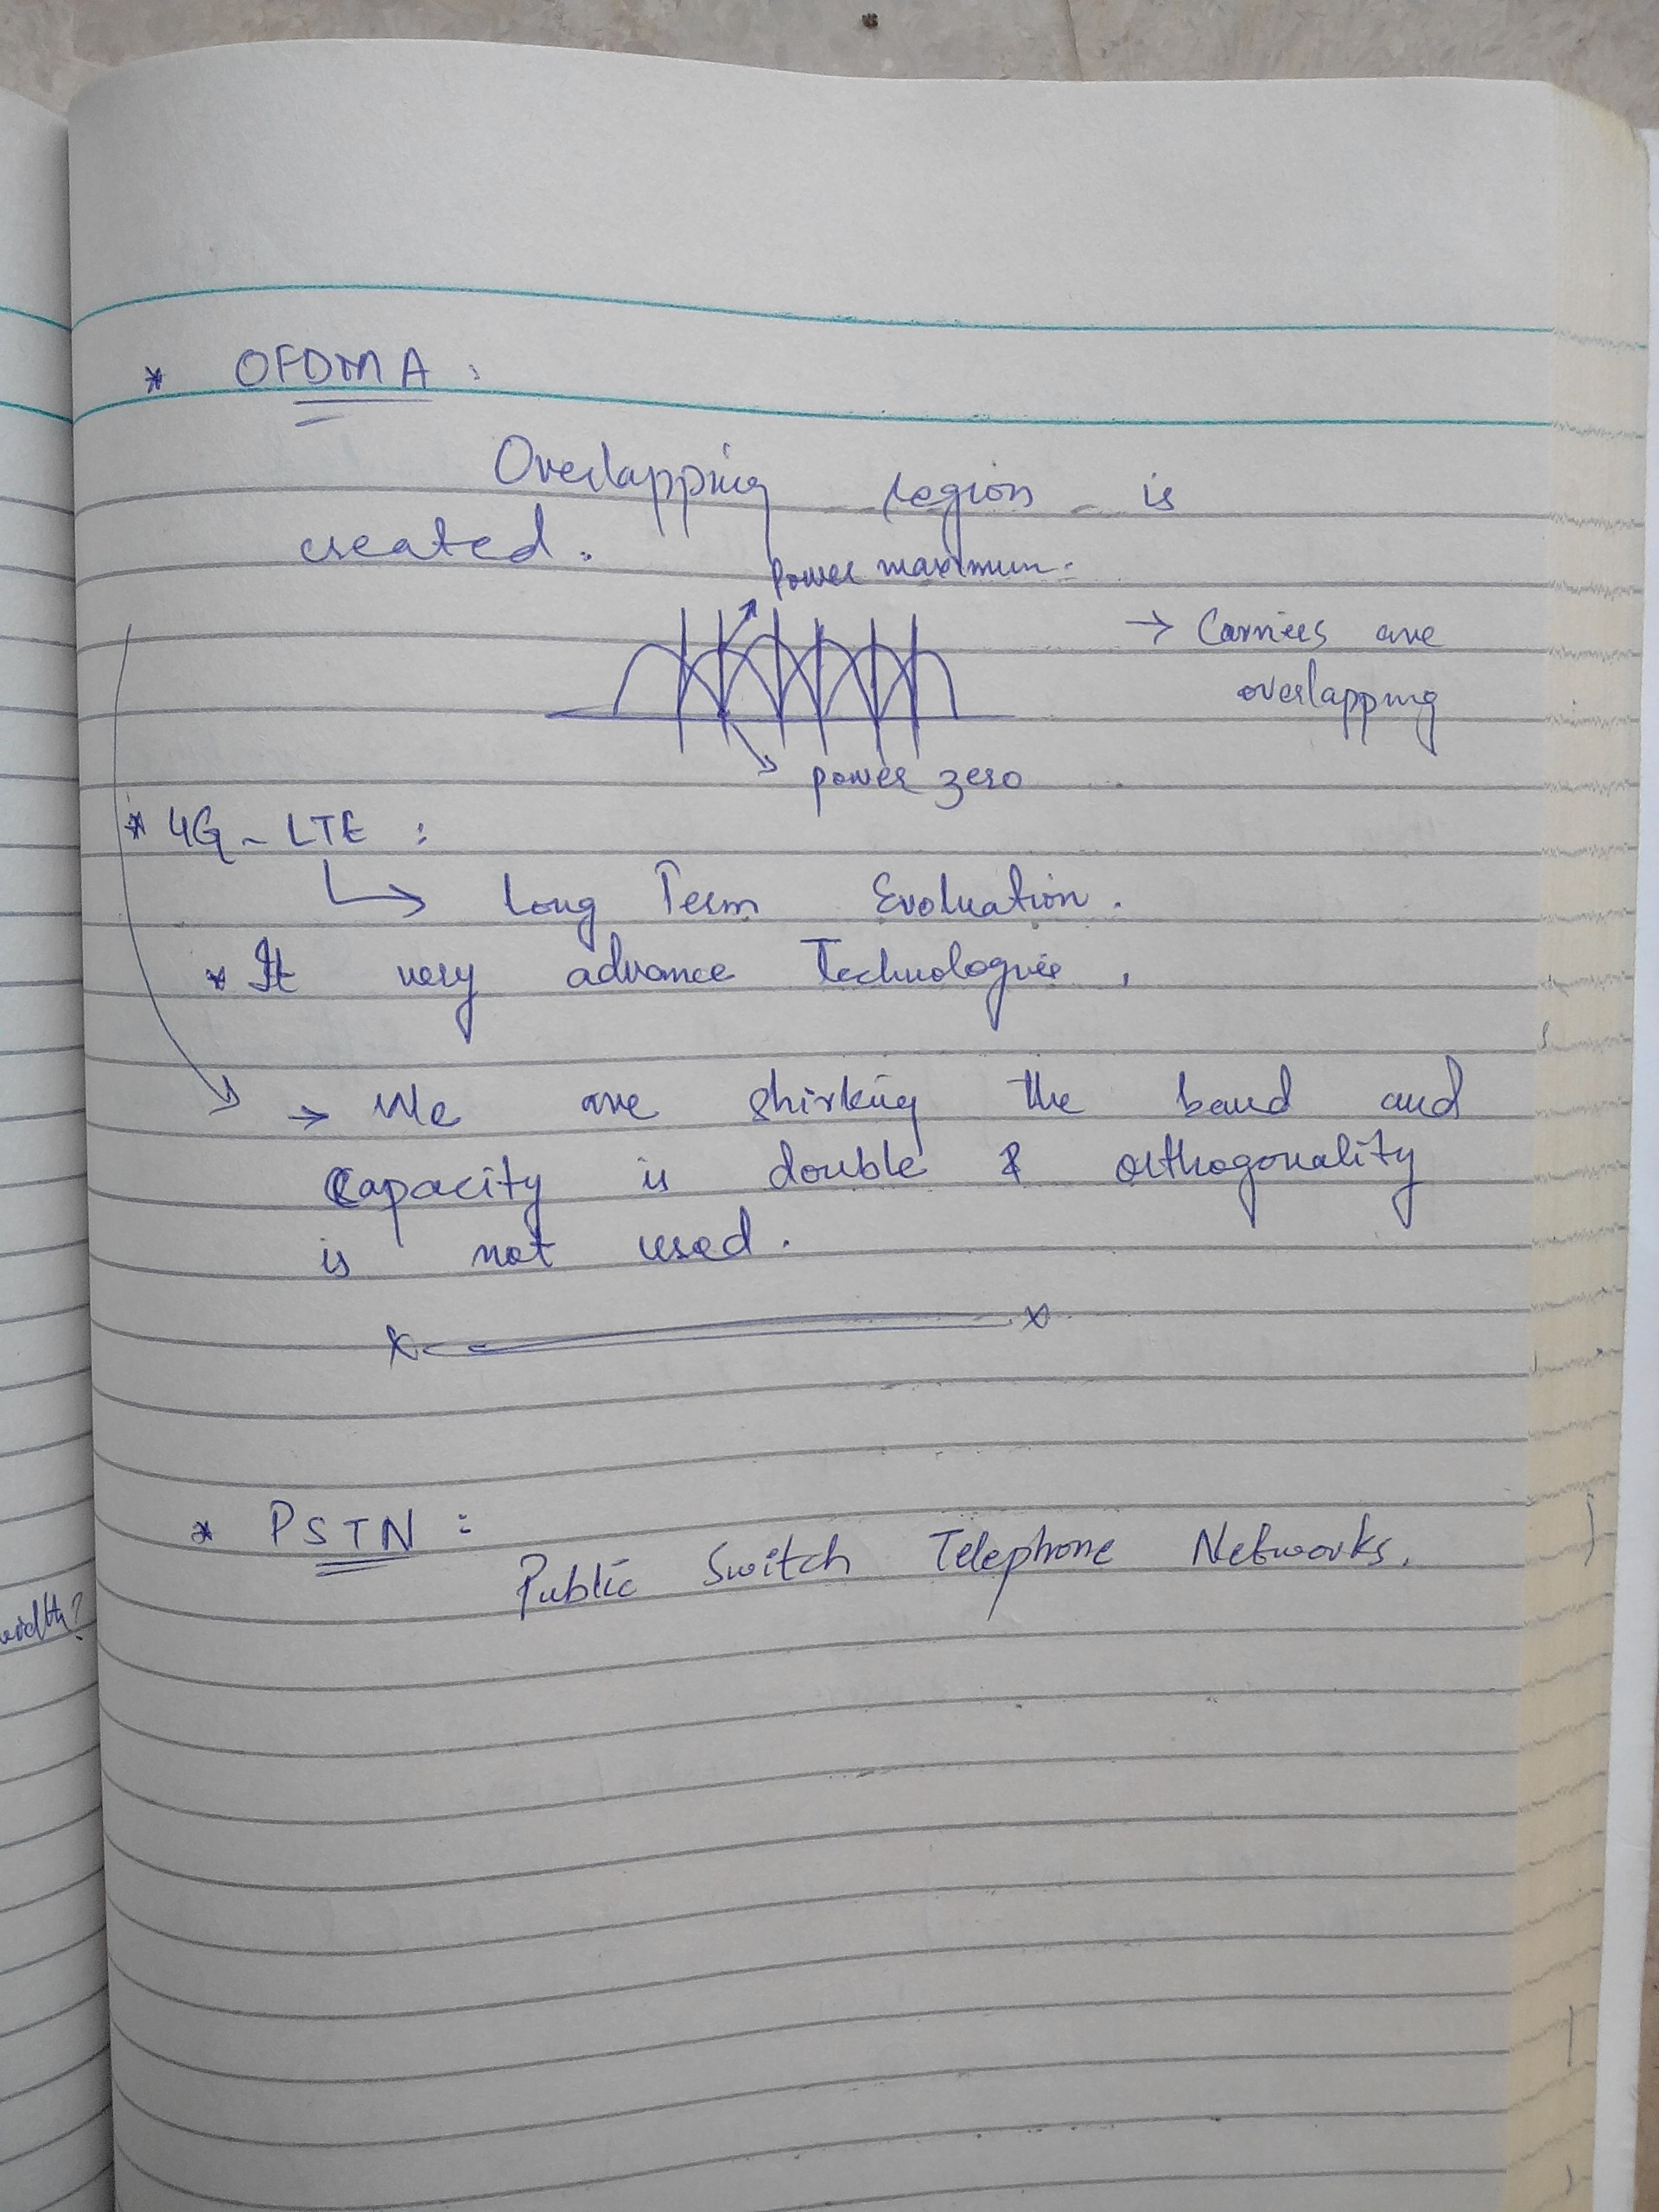 * OFDMA :
Overlapping region is
created.
Power maximum.
→ Carriers are
overlapping
power zero
* 4G - LTE :
↳ Long Term Evoluation.
* It very advance Technologie.
→ We are shirking the band and
Capacity is double & orthogonality
is not used.
x x
* PSTN :
Public Switch Telephone Networks.
width?